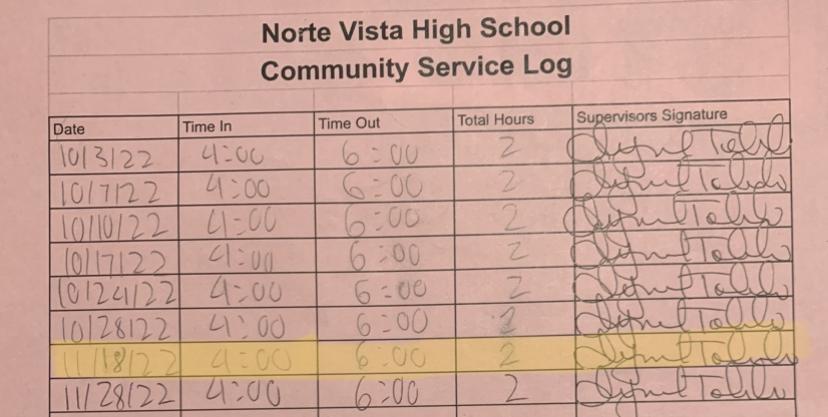 Norte Vista High School
Community Service Log
Date Time In Time Out Total Hours Supervisors Signature
10/3/22 4:00 6:00 2
10/7/22 4:00 6:00 2
10/10/22 4:00 6:00 2
10/17/22 4:00 6:00 2
10/24/22 4:00 6:00 2
10/28/22 4:00 6:00 2
11/18/22 4:00 6:00 2
11/28/22 4:00 6:00 2